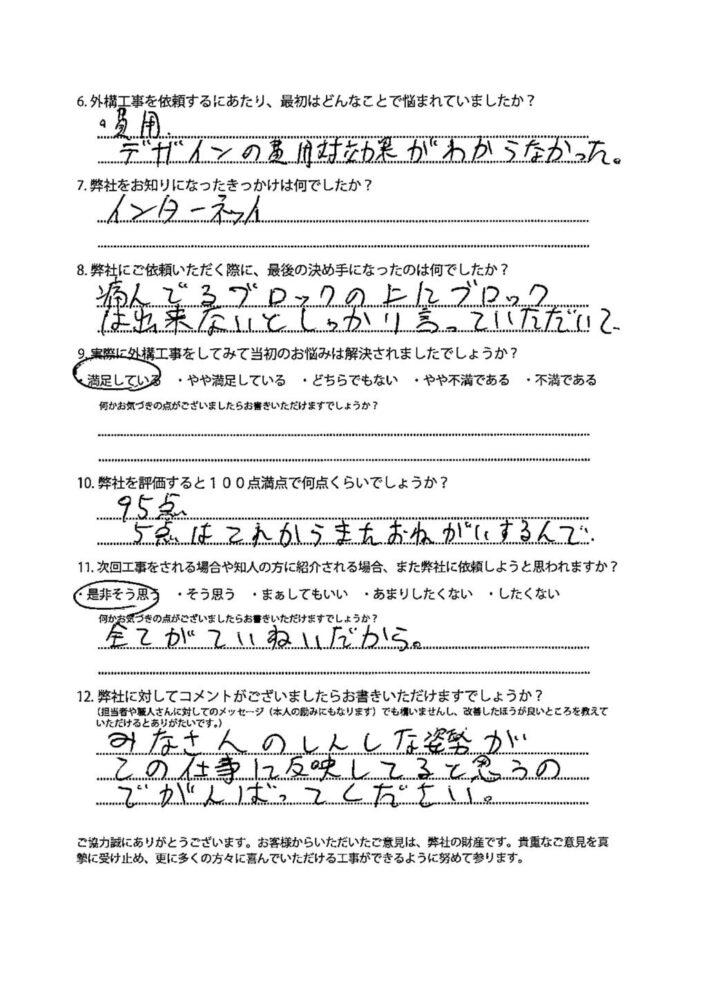 6. 外構工事を依頼するにあたり、最初はどんなことで悩まれていましたか？
・費用.
デザインの費用対効果がわからなかった。
7. 弊社をお知りになったきっかけは何でしたか？
インターネット
8. 弊社にご依頼いただく際に、最後の決め手になったのは何でしたか？
痛んでるブロックの上にブロック
は出来ないとしっかり言っていただいて、
9. 実際に外構工事をしてみて当初のお悩みは解決されましたでしょうか？
・満足している ・やや満足している ・どちらでもない ・やや不満である ・不満である
何かお気づきの点がございましたらお書きいただけますでしょうか？
10. 弊社を評価すると１００点満点で何点くらいでしょうか？
95点、
5点はこれからまたおねがいするんで.
11. 次回工事をされる場合や知人の方に紹介される場合、また弊社に依頼しようと思われますか？
・是非そう思う ・そう思う ・まぁしてもいい ・あまりしたくない ・したくない
何かお気づきの点がございましたらお書きいただけますでしょうか？
全てがていねいだから。
12. 弊社に対してコメントがございましたらお書きいただけますでしょうか？
（担当者や職人さんに対してのメッセージ（本人の励みにもなります）でも構いませんし、改善したほうが良いところを教えて
いただけるとありがたいです。）
みなさんのしんしな姿勢が
この仕事に反映してると思うの
でがんばってください。
ご協力誠にありがとうございます。お客様からいただいたご意見は、弊社の財産です。貴重なご意見を真
摯に受け止め、更に多くの方々に喜んでいただける工事ができるように努めて参ります。